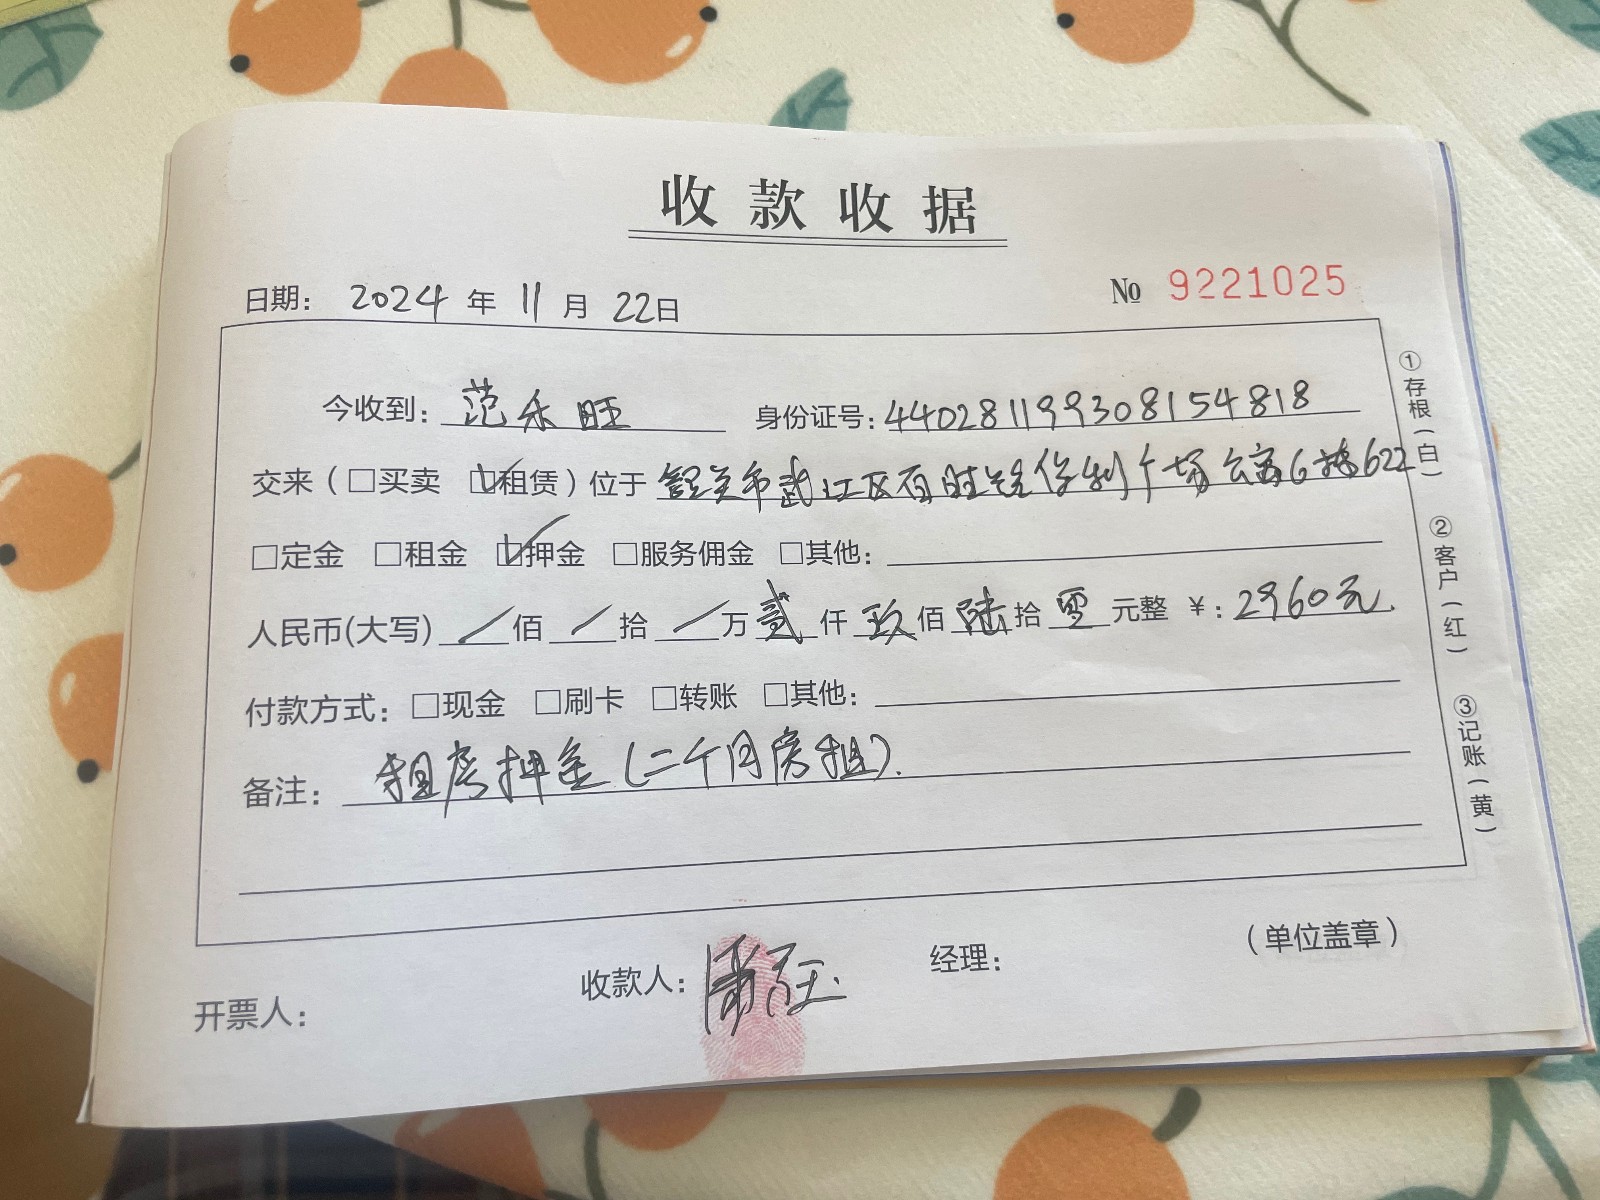 收款收据
日期： 2024 年 11 月 22日
№ 9221025
今收到：范禾旺 身份证号：440281199308154818
交来（□买卖 ☑租赁）位于 韶关市武江区百旺 保利广场公寓6栋622
□定金 □租金 ☑押金 □服务佣金 □其他：
人民币(大写) ／佰 ／拾 ／万 贰仟 玖佰 陆拾 零元整 ￥：2960元.
付款方式：□现金 □刷卡 □转账 □其他：
备注：租房押金(二个月房租).
收款人： 经理： （单位盖章）
开票人：
①存根（白）
②客户（红）
③记账（黄）